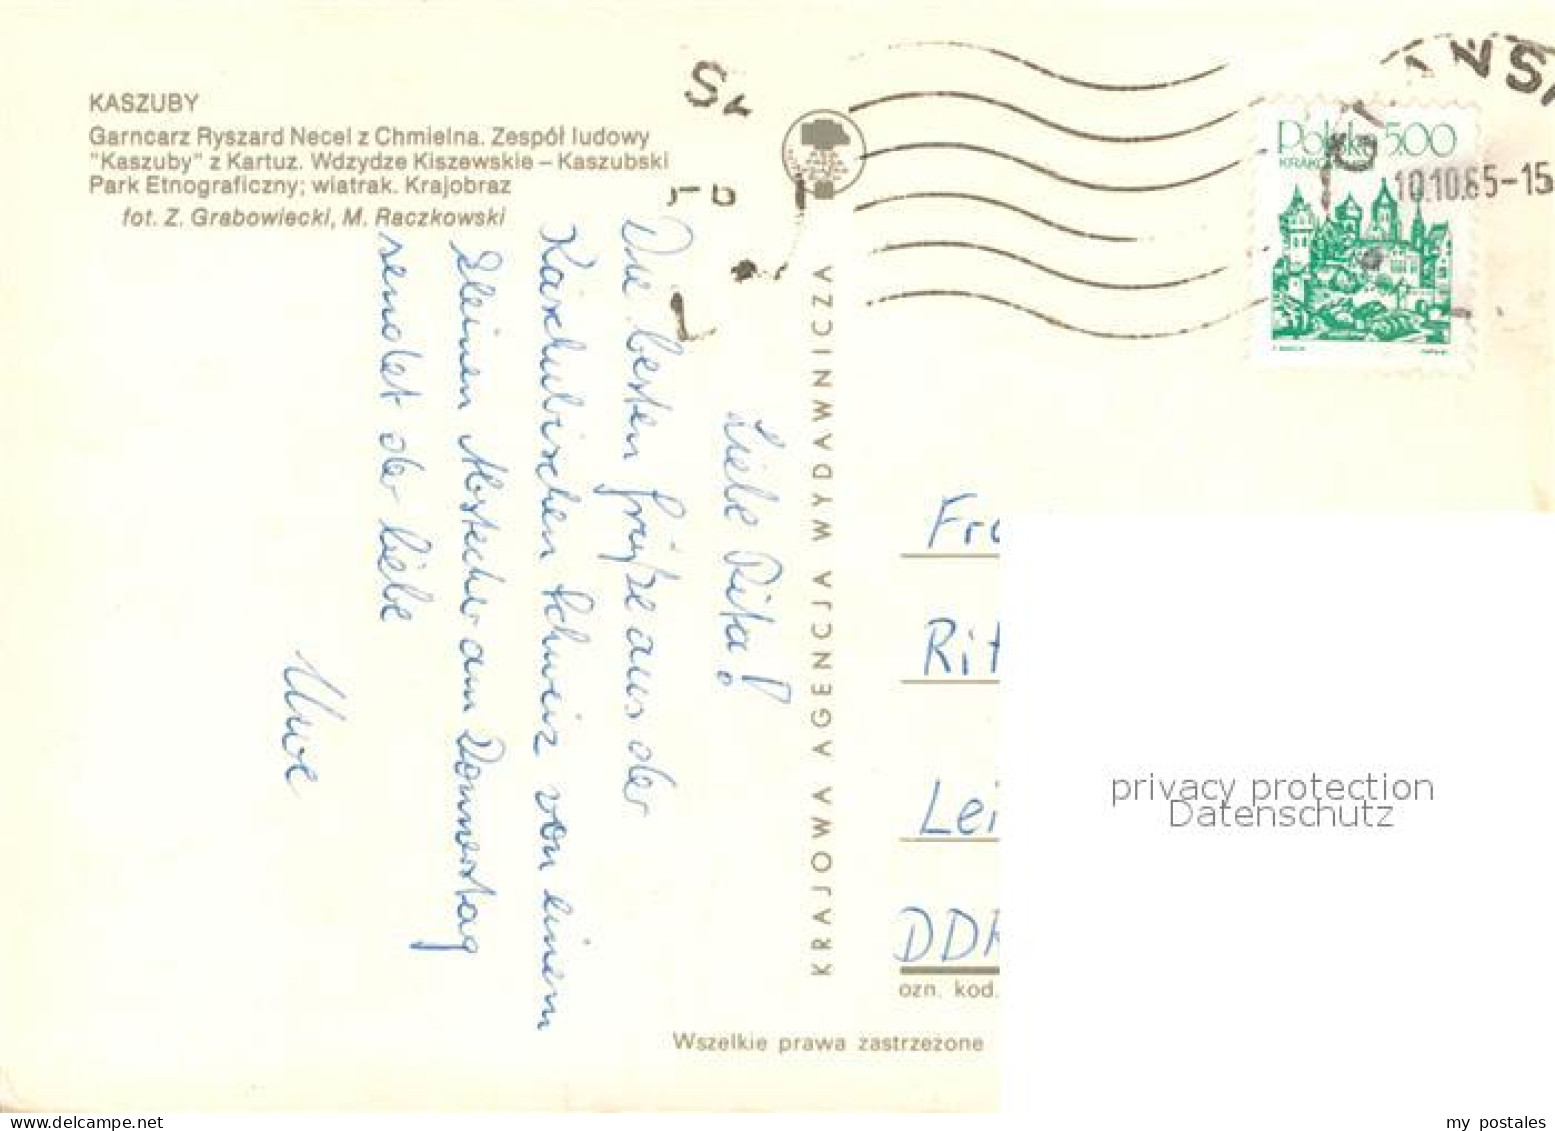 KASZUBY
Garncarz Ryszard Necel z Chmielna. Zespół ludowy
"Kaszuby" z Kartuz. Wdzydze Kiszewskie – Kaszubski
Park Etnograficzny; wiatrak. Krajobraz
fot. Z. Grabowiecki, M. Raczkowski
Liebe Rita!
Die besten Grüße aus der
Kaschubischen Schweiz von einem
kleinen Abstecher am Donnerstag
sendet der liebe
Uwe
KRAJOWA AGENCJA WYDAWNICZA
Polska 5.00
KRAKÓW
10.10.85-15
Fr
Rit
Lei
DDR
ozn. kod.
Wszelkie prawa zastrzeżone
privacy protection
Datenschutz
my postales